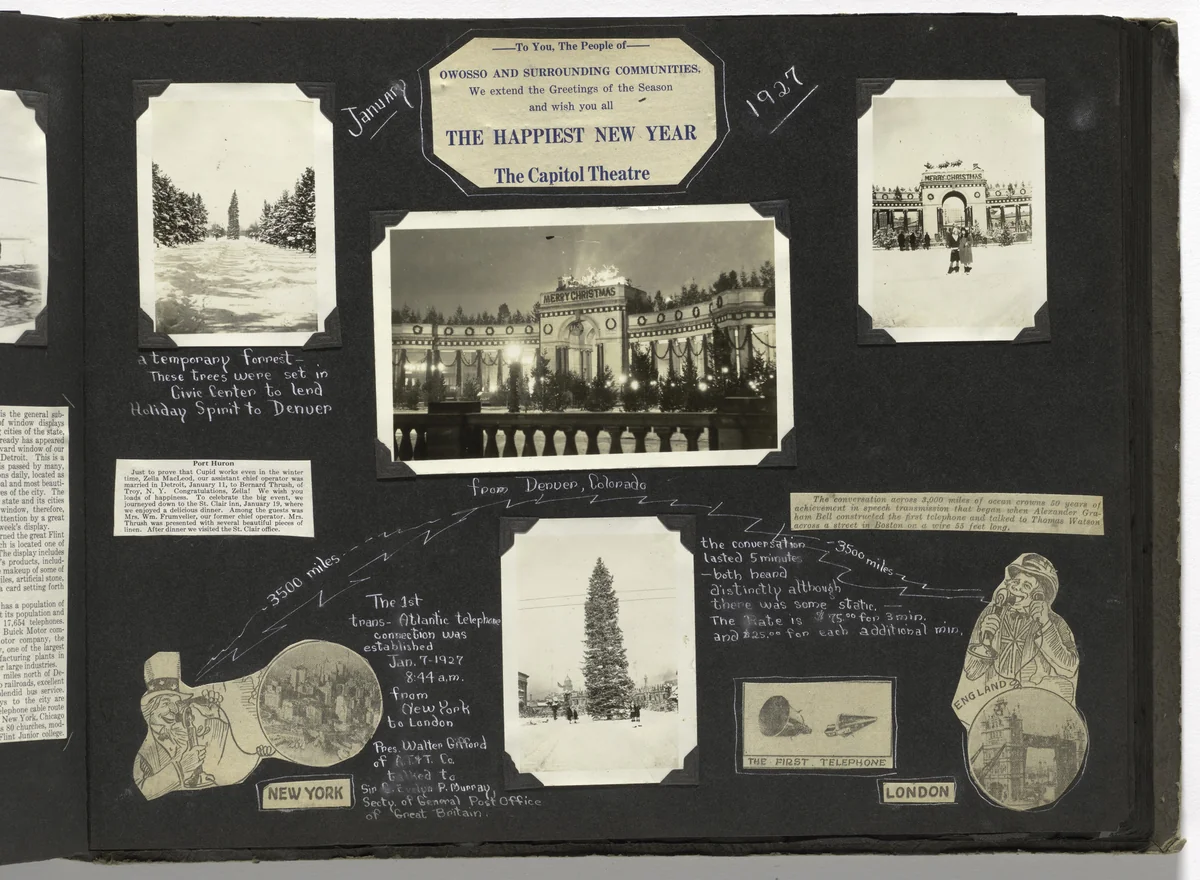 January
——To You, The People of——
OWOSSO AND SURROUNDING COMMUNITIES.
We extend the Greetings of the Season
and wish you all
THE HAPPIEST NEW YEAR
The Capitol Theatre
1927
MERRY CHRISTMAS
MERRY CHRISTMAS
a temporary forrest—
These trees were set in
Civic Center to lend
Holiday Spirit to Denver
from Denver, Colorado
is the general sub-
of window displays
cities of the state,
ready has appeared
vard window of our
Detroit. This is a
is passed by many,
ons daily, located as
al and most beauti-
es of the city. The
state and its cities
window, therefore,
ttention by a great
week's display.
rned the great Flint
ch is located one of
The display includes
's products, includ-
makeup of some of
iles, artificial stone,
a card setting forth
has a population of
t its population and
17,654 telephones.
Buick Motor com-
otor company, the
, one of the largest
facturing plants in
r large industries.
miles north of De-
railroads, excellent
plendid bus service.
ys to the city are
elephone cable route
New York, Chicago
s 80 churches, mod-
Flint Junior college.
Port Huron
Just to prove that Cupid works even in the winter
time, Zella MacLeod, our assistant chief operator was
married in Detroit, January 11, to Bernard Thrush, of
Troy, N. Y. Congratulations, Zella! We wish you
loads of happiness. To celebrate the big event, we
journeyed down to the St. Clair inn, January 19, where
we enjoyed a delicious dinner. Among the guests was
Mrs. Wm. Frumveller, our former chief operator. Mrs.
Thrush was presented with several beautiful pieces of
linen. After dinner we visited the St. Clair office.
The conversation across 3,000 miles of ocean crowns 50 years of
achievement in speech transmission that began when Alexander Gra-
ham Bell constructed the first telephone and talked to Thomas Watson
across a street in Boston on a wire 55 feet long.
-3500 miles-
The 1st
trans- Atlantic telephone
connection was
established
Jan. 7-1927
8:44 a.m.
from
New York
to London
Pres. Walter Gifford
of A.T.&T. Co.
talked to
Sir G. Evelyn P. Murray,
Secty. of General Post Office
of Great Britain.
the conversation
lasted 5 minutes
—both heard
distinctly although
there was some static. —
The Rate is $75.00 for 3 min.
and $25.00 for each additional min.
-3500 miles-
NEW YORK
THE FIRST TELEPHONE
ENGLAND
LONDON